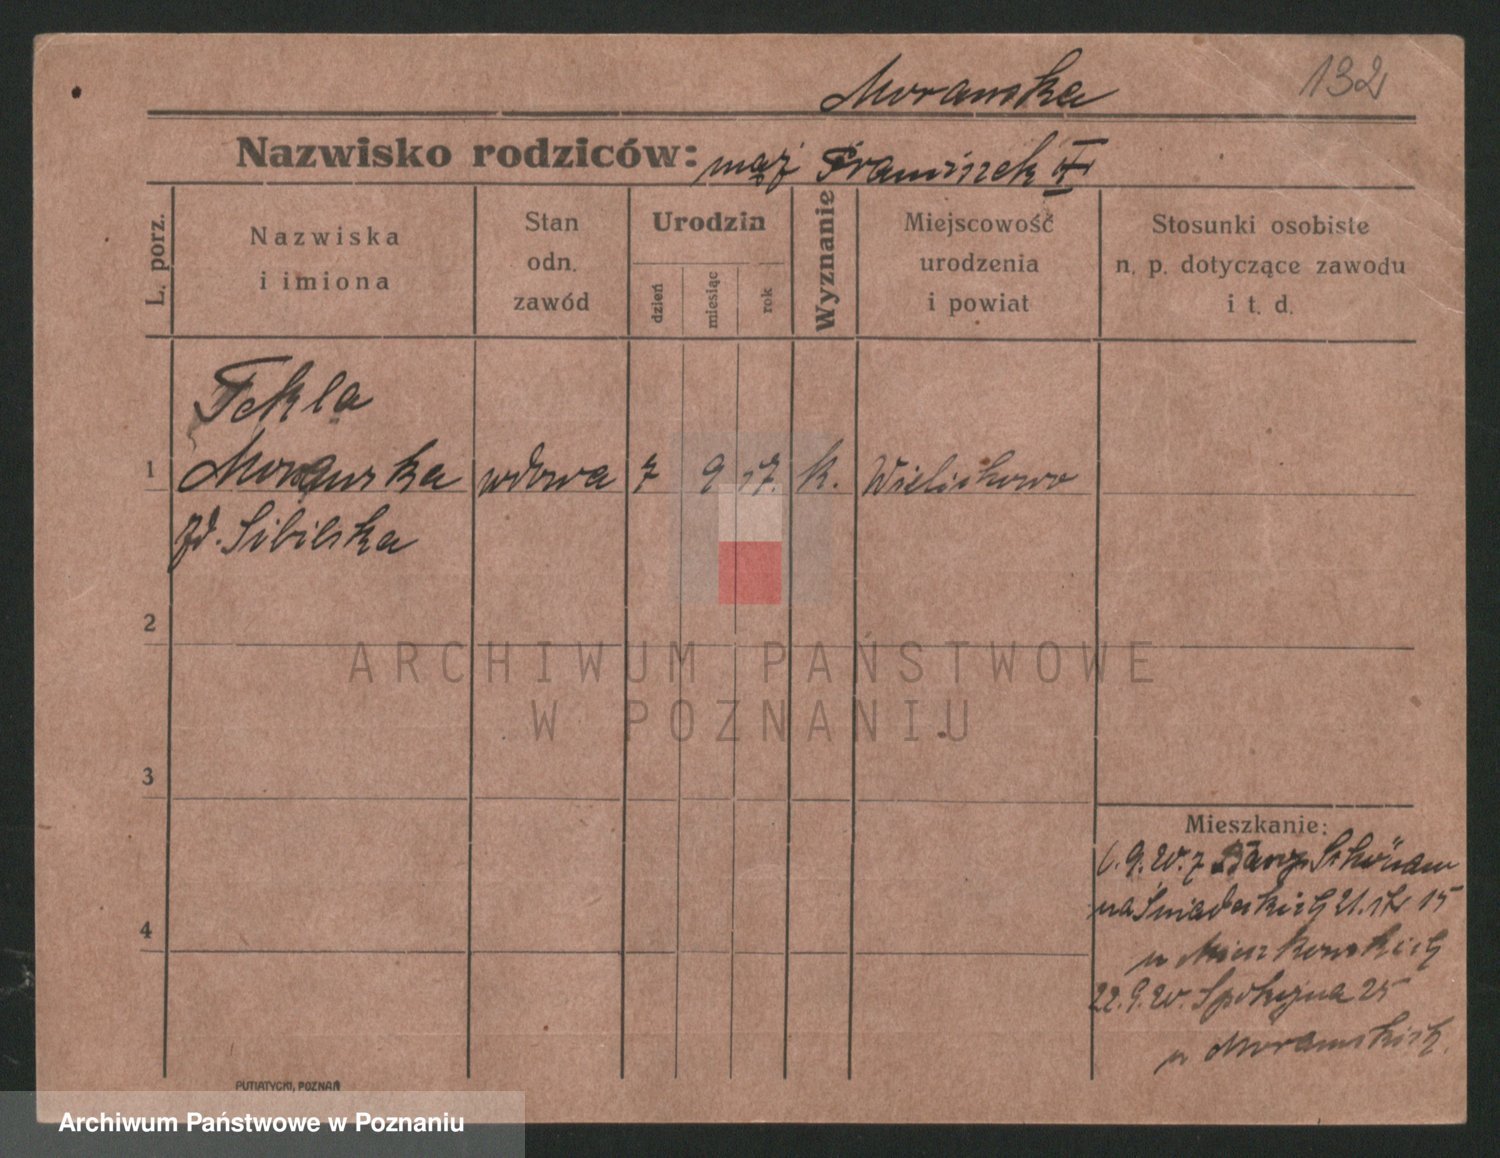 Morawska
132
Nazwisko rodziców: mąż Franciszek
L. porz.
Nazwiska
i imiona
Stan
odn.
zawód
Urodzin
dzień
miesiąc
rok
Wyznanie
Miejscowość
urodzenia
i powiat
Stosunki osobiste
n. p. dotyczące zawodu
i t. d.
Tekla
1 Morawska wdowa 7 9 k. Wielichowo
zd. Sibilska
2
3
4
Mieszkanie:
6.9.20. z
na Śniadeckich 21. 15
u
22.9.20. Spokojna 25
u Morawskich
PUTIATYCKI, POZNAŃ
ARCHIWUM PAŃSTWOWE
W POZNANIU
Archiwum Państwowe w Poznaniu